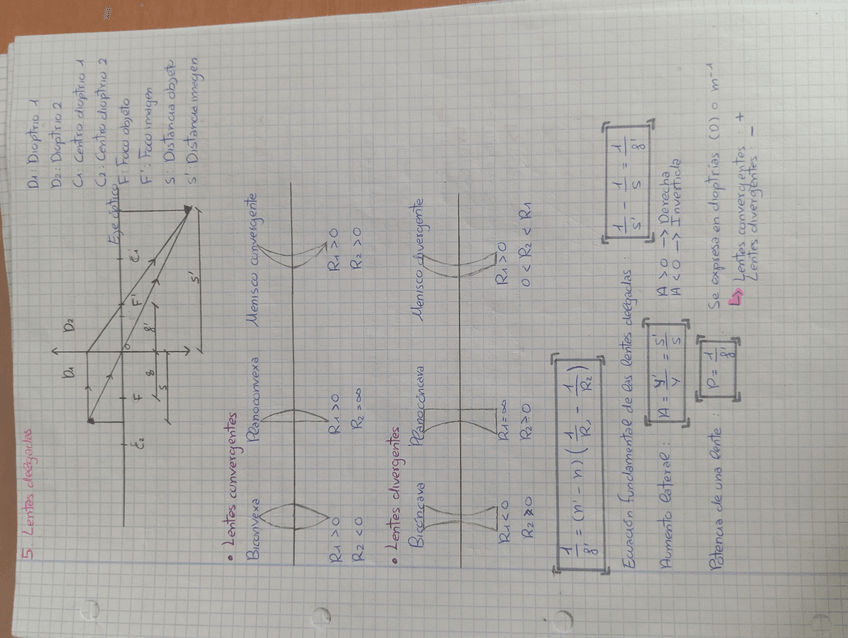 5. Lentes delgadas
D1: Dioptrio 1
D2: Dioptrio 2
C1: Centro dioptrio 1
C2: Centro dioptrio 2
F: Foco objeto
F': Foco imagen
S: Distancia objeto
S': Distancia imagen
D1 D2
Eje óptico
C2 F O F' C1
f f'
s s'
• Lentes convergentes
Biconvexa Planoconvexa Menisco convergente
R1 > 0 R1 > 0 R1 > 0
R2 < 0 R2 = ∞ R2 > 0
• Lentes divergentes
Bicóncava Planocóncava Menisco divergente
R1 < 0 R1 = ∞ R1 > 0
R2 > 0 R2 > 0 0 < R2 < R1
[1/f' = (n' - n) (1/R1 - 1/R2)]
Ecuación fundamental de las lentes delgadas: [1/s' - 1/s = 1/f']
Aumento lateral: [A = y'/y = s'/s] A > 0 → Derecha
A < 0 → Invertida
Potencia de una lente: [P = 1/f'] Se expresa en dioptrías (D) o m⁻¹
↳ Lentes convergentes +
Lentes divergentes: -